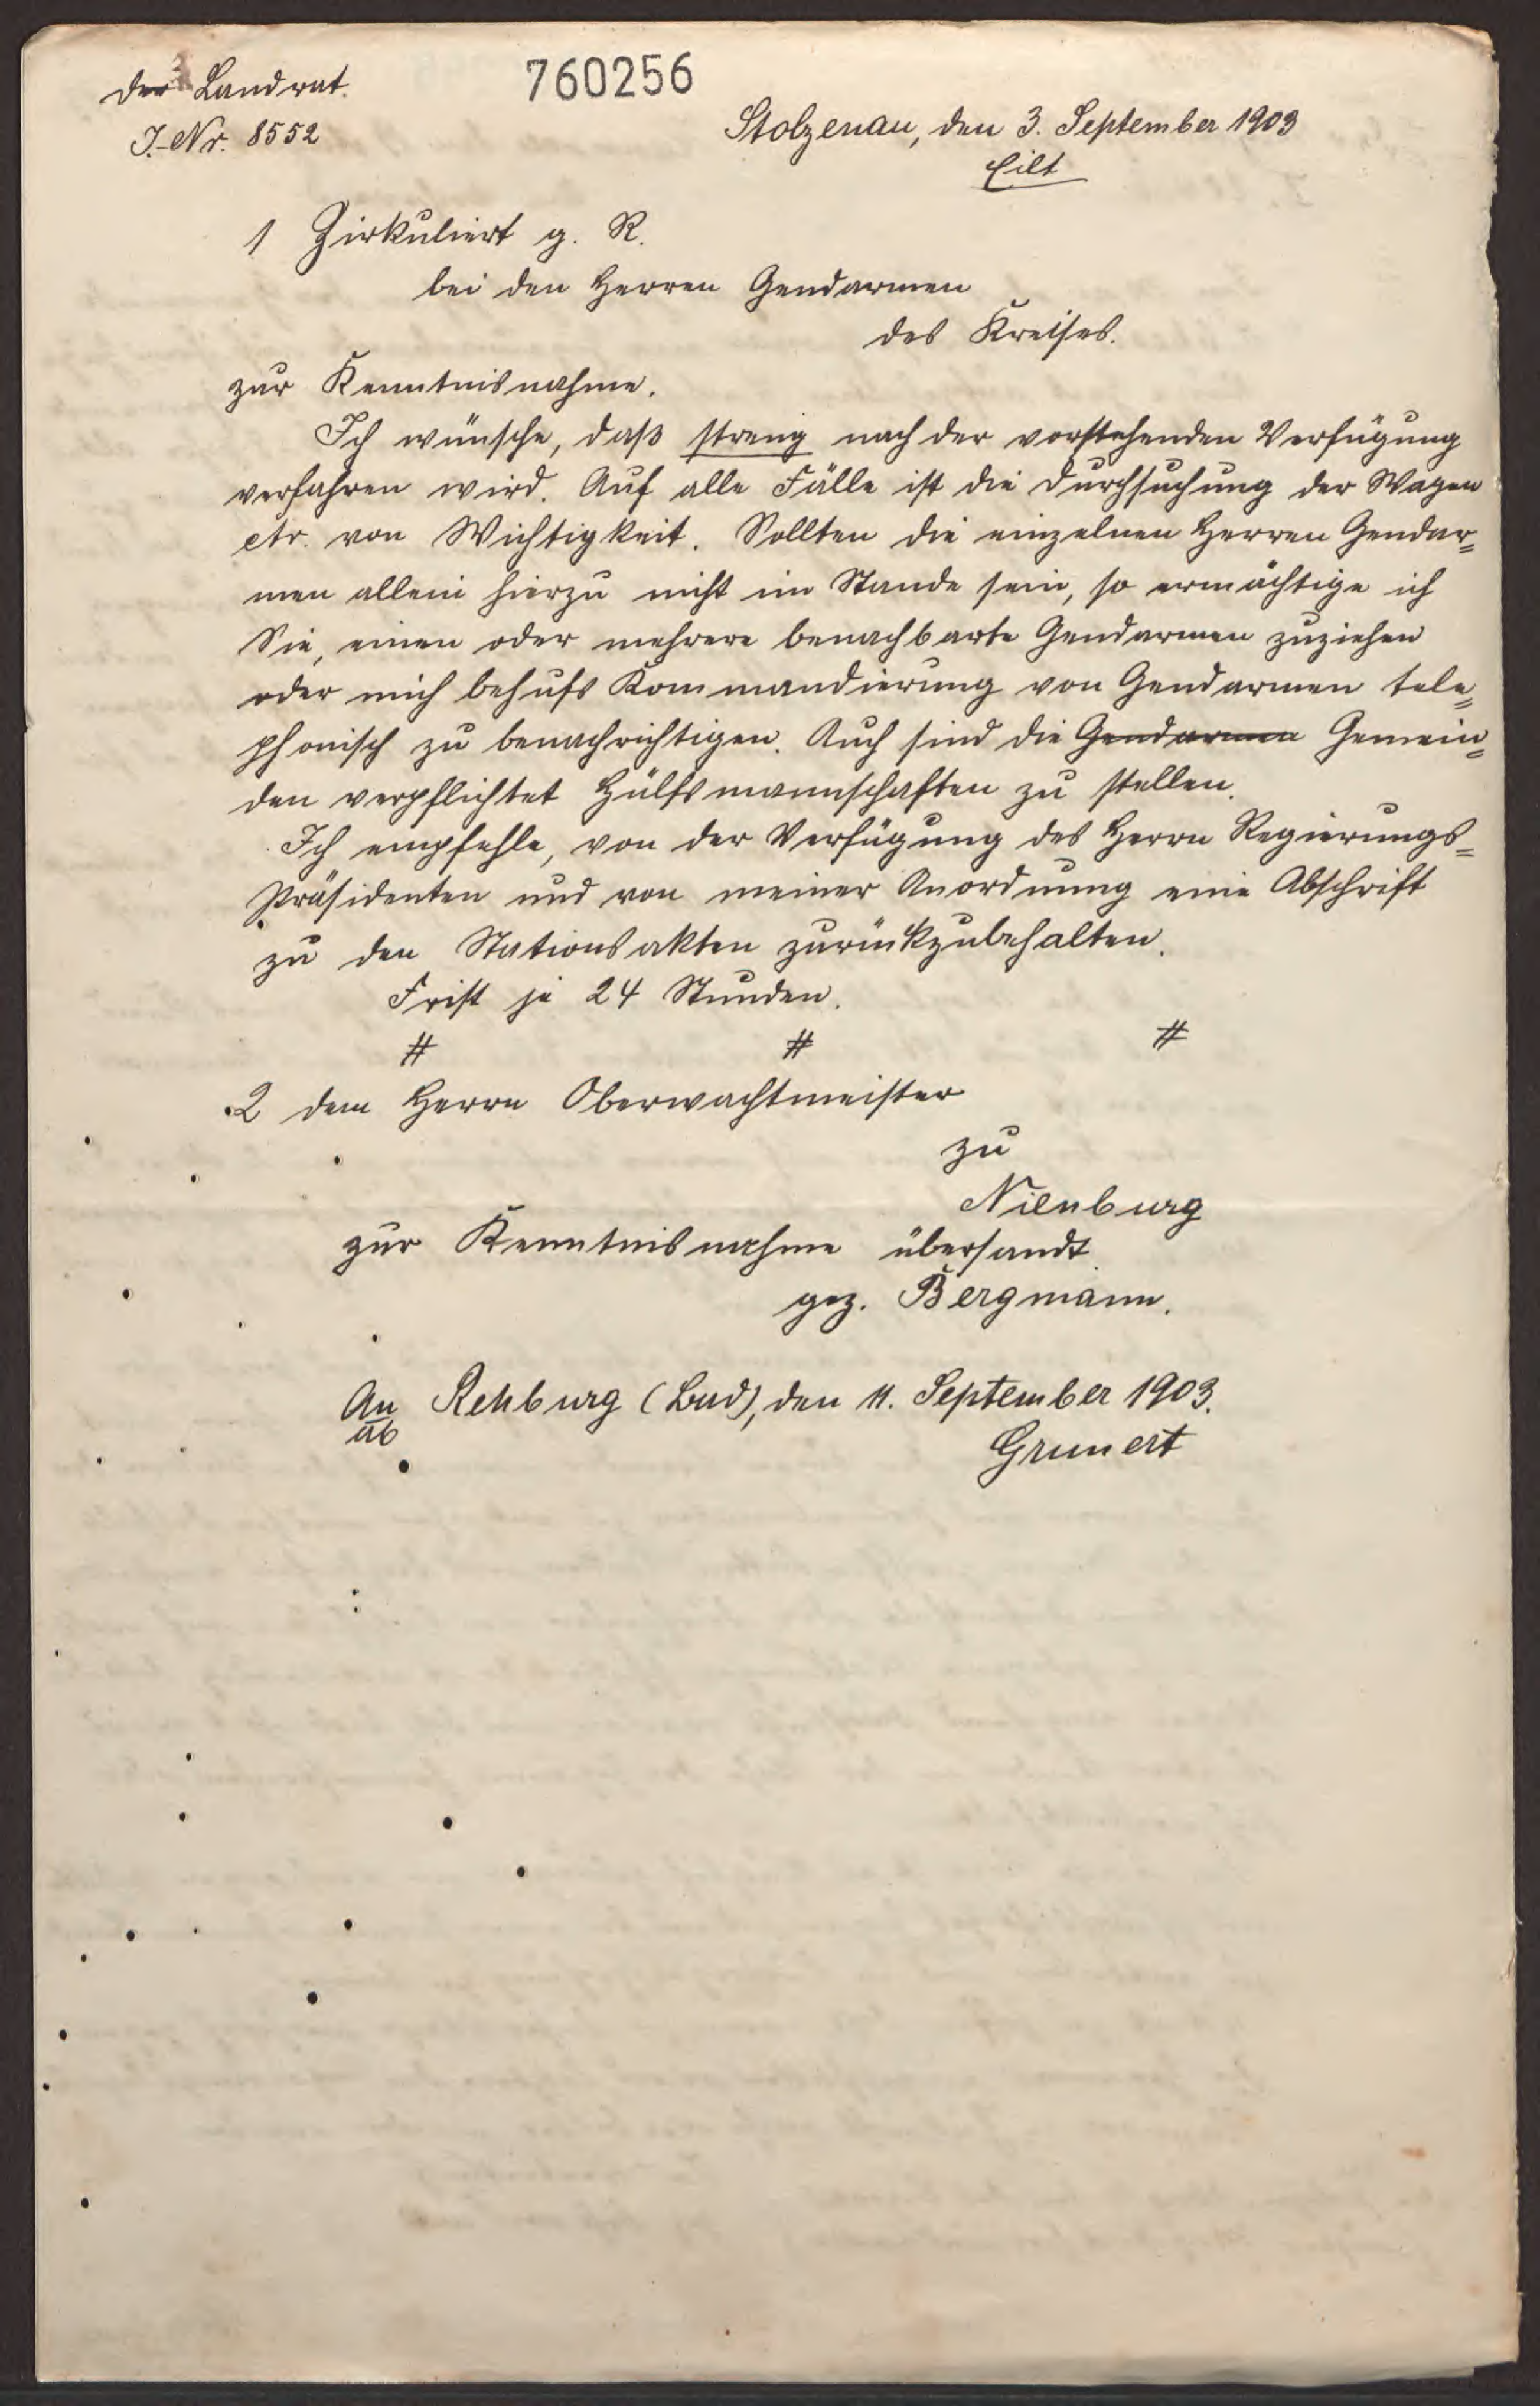 Der Landrat.
760256
J.-Nr. 8552
Stolzenau, den 3. September 1903
Eilt
1 Zirkuliert g. R.
bei den Herren Gendarmen
des Kreises.
zur Kenntnisnahme.
Ich wünsche, daß streng nach der vorstehenden Verfügung
verfahren wird. Auf alle Fälle ist die Durchsuchung der Wagen
etr. von Wichtigkeit. Sollten die einzelnen Herren Gendar=
men allein hierzu nicht im Stande sein, so ermächtige ich
Sie, einen oder mehrere benachbarte Gendarmen zuziehen
oder mich behufs Kommandierung von Gendarmen tele=
phonisch zu benachrichtigen. Auch sind die Gendarmen Gemein=
den verpflichtet Hülfsmannschaften zu stellen.
Ich empfehle, von der Verfügung des Herrn Regierungs=
Präsidenten und von meiner Anordnung eine Abschrift
zu den Stationsakten zurückzubehalten.
Frist je 24 Stunden.
# # #
2 dem Herrn Oberwachtmeister
zu
Nienburg
zur Kenntnisnahme übersandt.
gez. Bergmann.
An Rehburg (Bad), den 11. September 1903.
ab
Grunert